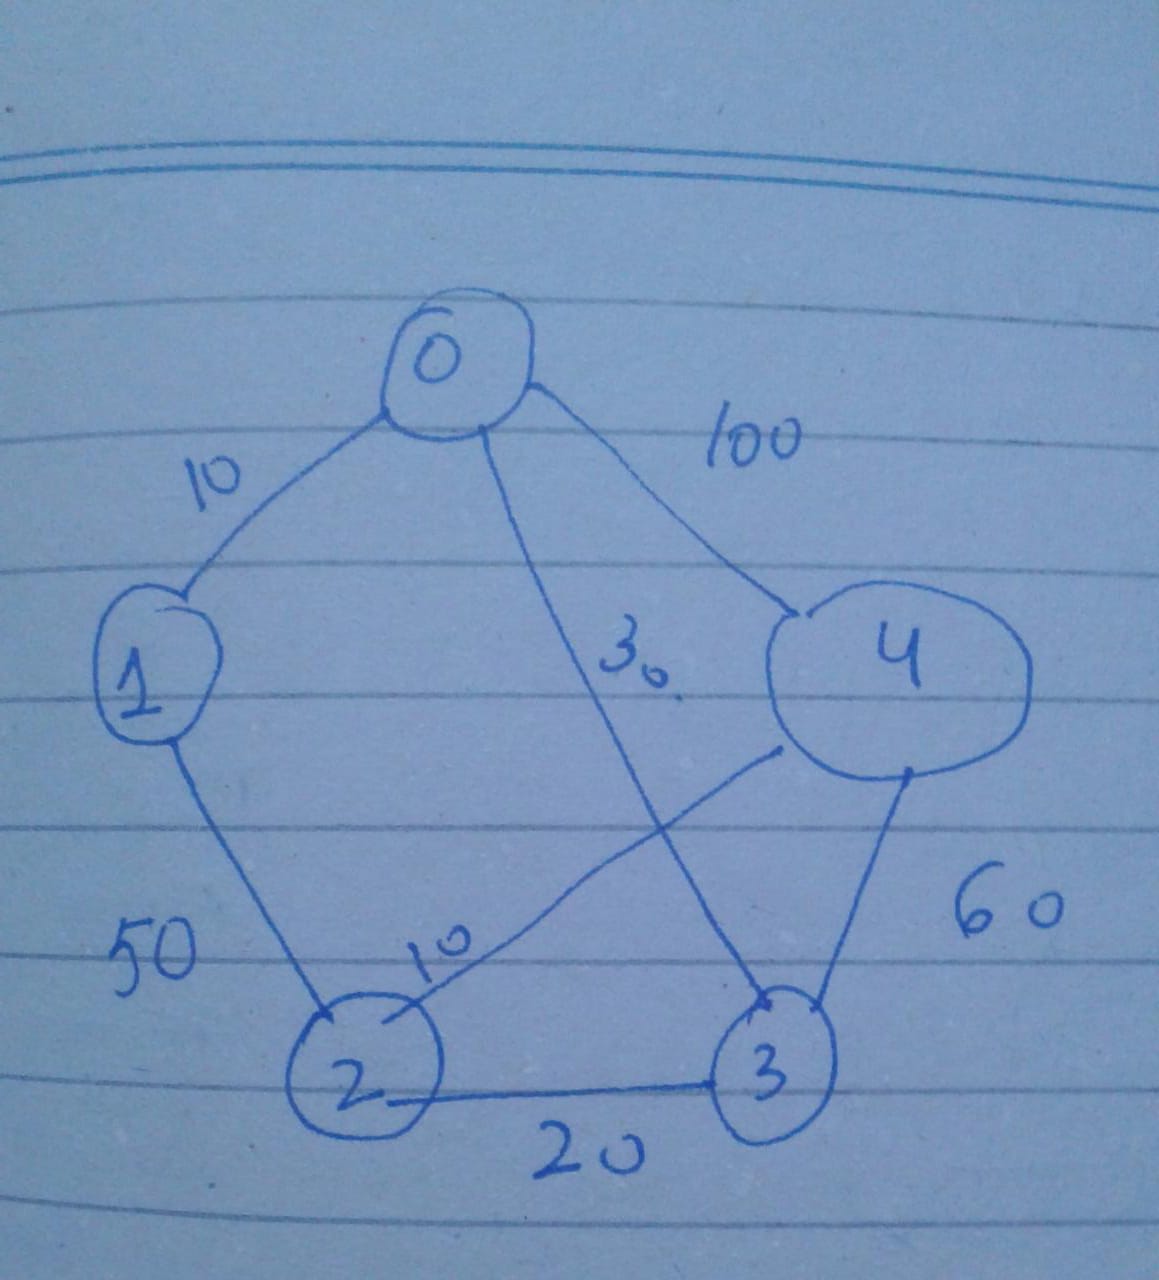 0
100
10
30
1
4
50
10
60
2
3
20